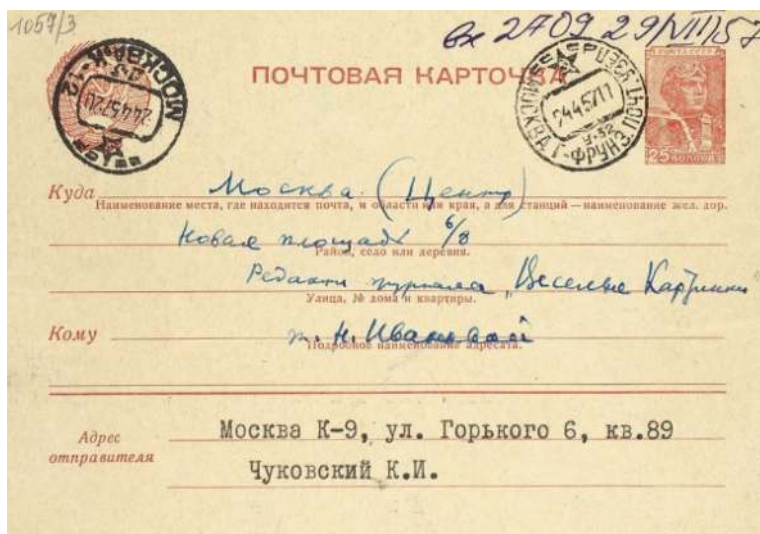 1057/3
вх 2709 29/VIII 57
ПОЧТА СССР
ПОЧТОВАЯ КАРТОЧКА
МОСКВА К-12
24457 20
МОСКВА Г-ФРУНЗ. ПОЧТ.
24457 11
У-32
25 КОПЕЕК
Куда Москва (Центр)
Наименование места, где находится почта, и области или края, а для станций — наименование жел. дор.
Новая площадь 6/8
Район, село или деревня.
Редакти журнала „Веселые Картинки
Улица, № дома и квартиры.
Кому т. Н. Ивановой
Подробное наименование адресата.
Адрес отправителя
Москва К-9, ул. Горького 6, кв.89
Чуковский К.И.